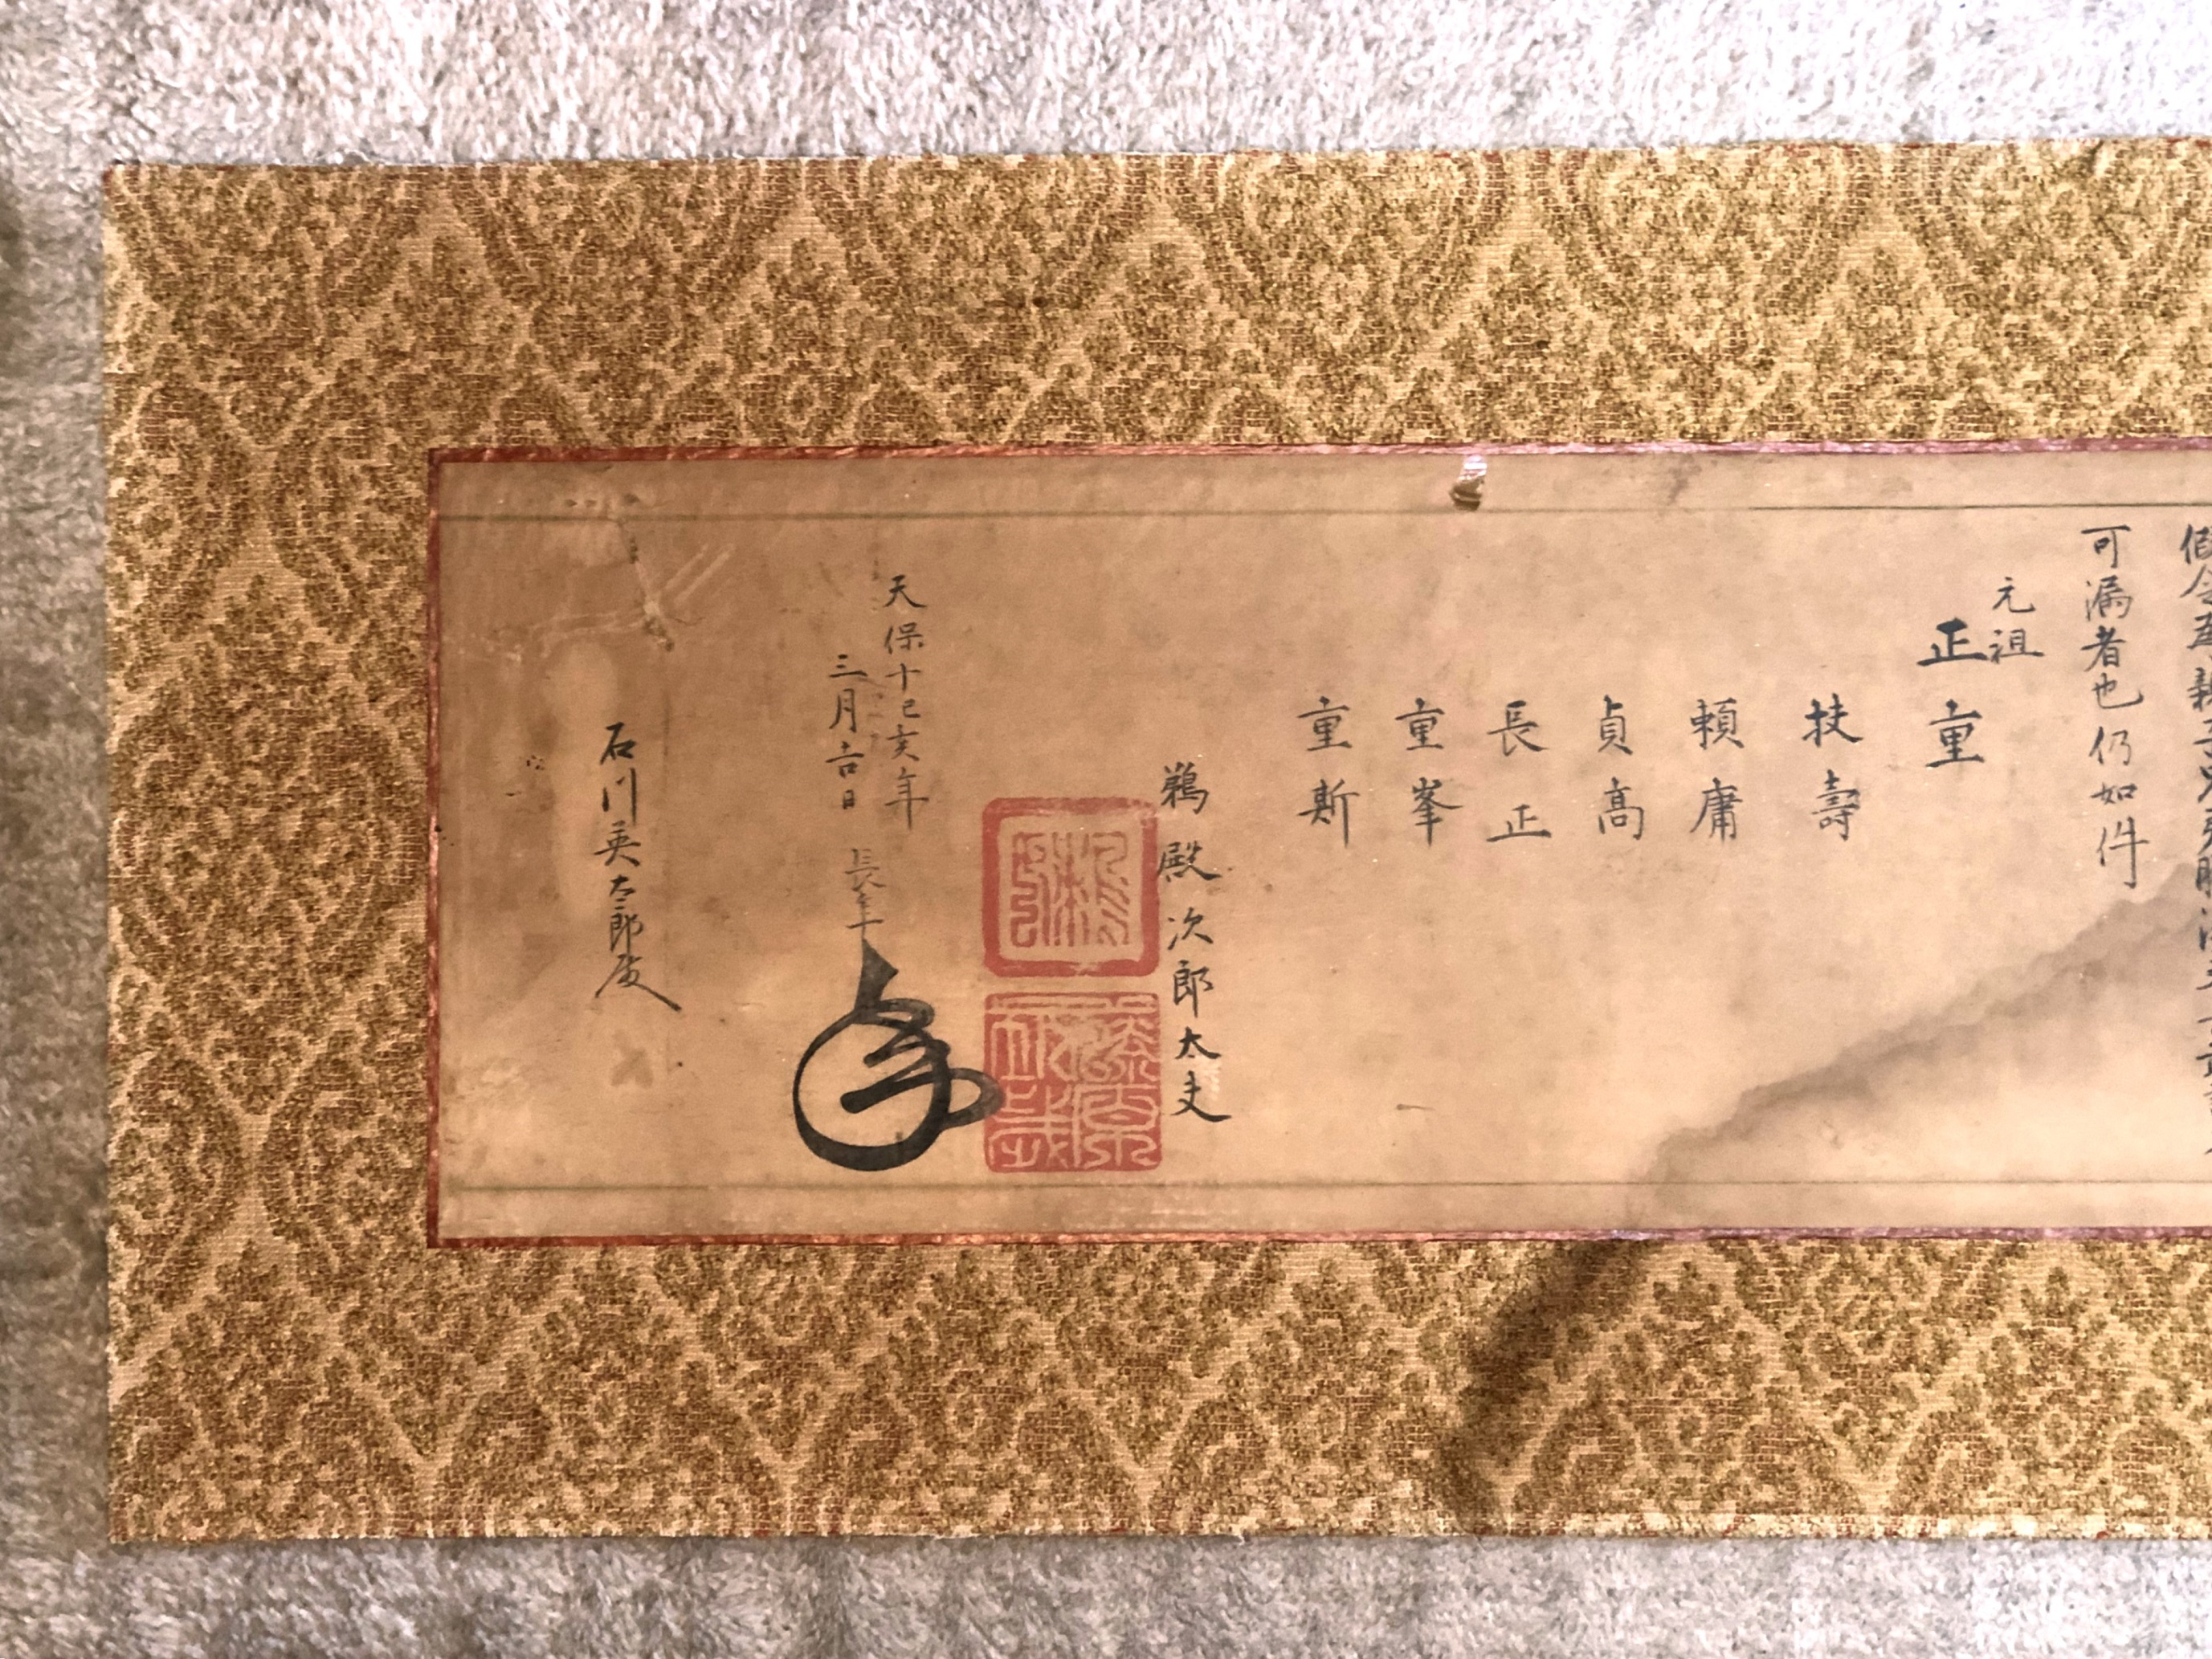 可漏者也仍如件
元祖
正重
扶壽
頼庸
貞高
長正
重峯
重斯
鵜殿次郎太夫
天保十己亥年
三月吉日
長年
石川英太郎殿